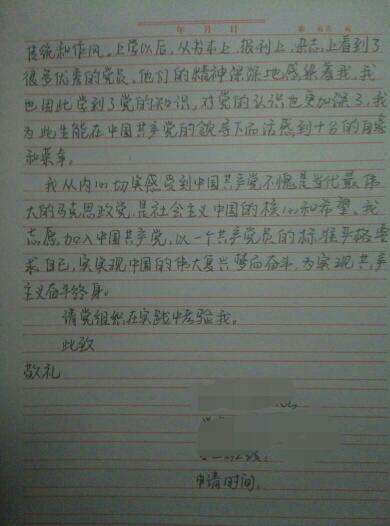 年 月 日
传统和作风。上学以后，从书本上，报刊上，杂志上看到了
很多优秀的党员。他们的精神深深地感染着我，我
也因此学到了党的知识，对党的认识也更加深了，我
为此生能在中国共产党的领导下而活感到十分的自豪
和荣幸。
我从内心切实感受到中国共产党不愧是当代最伟
大的马克思政党，是社会主义中国的核心和希望。我
志愿加入中国共产党，以一个共产党员的标准严格要
求自己，实实现中国的伟大复兴梦而奋斗，为实现共产
主义奋斗终身。
请党组织在实践中考验我。
此致
敬礼
申请时间：